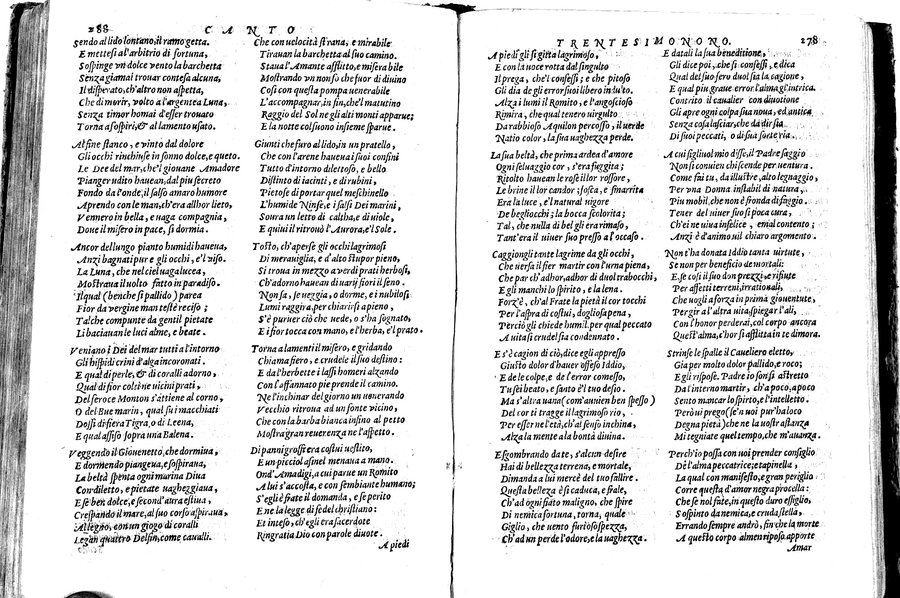 288 CANTO
Sendo al lido lontano, il ramo getta.
E mettesi al'arbitrio di fortuna,
Sospinge vn dolce vento la barchetta
Senza giamai trouar contesa alcuna,
Il disperato, ch'altro non aspetta,
Che di morir, volto a l'argentea Luna,
Senza timor homai d'esser trouato
Torna a sospiri, & al lamento vsato.
Al fine stanco, e vinto dal dolore
Gli occhi rinchiuse in sonno dolce, e queto.
Le Dee del mar, che'l giouane Amadore
Pianger vdito hauean, dal piu secreto
Fondo da l'onde, il salso amaro humore
Aprendo con le man, ch'era allhor lieto,
Vennero in bella, e uaga compagnia,
Doue il misero in pace, si dormia.
Ancor del lungo pianto humidi haueua,
Anzi bagnati pur e gli occhi, e'l viso.
La Luna, che nel ciel uaga lucea,
Mostraua il uolto fatto in paradiso.
Il qual (benche si pallido) parea
Fior da vergine man testè reciso;
Tal che compunte da gentil pietate
Li baciauan le luci alme, e beate.
Veniano i Dei del mar tutti al'intorno
Gli hispidi crini d'alga incoronati.
E qual di perle, & di coralli adorno,
Qual di fior colti ne uicini prati,
Del feroce Monton s'attiene al corno,
O del Bue marin, qual su i macchiati
Dossi di fiera Tigra, o di Leena,
E qual assiso sopra una Balena.
Veggendo il Giouenetto, che dormiua,
E dormendo piangeua, e sospiraua,
La beltà spenta ogni marina Diua
Con diletto, e pietate uagheggiaua,
E se ben dolce, e second'aura estiua,
Crespando il mare, al suo corso aspiraua,
Allegro, con un giogo di coralli
Legan quattro Delfin, come caualli.
Che con velocità strana, e mirabile
Tirauan la barchetta al suo camino.
Staua l'Amante afflitto, e miserabile
Mostrando vn non so che fuor di diuino
Cosi con questa pompa uenerabile
L'accompagnar, in fin, che'l matutino
Raggio del Sol ne gli alti monti apparue;
E la notte col suono insieme sparue.
Giunti che furo al lido, in un pratello,
Che con l'arene haueua i suoi confini
Tutto d'intorno dilettoso, e bello
Distinto di iacinti, e di rubini,
Pietose di portar quel meschinello
L'humide Ninfe, e i salsi Dei marini,
Soura un letto di caltha, e di uiole,
E quiui il ritrouò l'Aurora, e'l Sole.
Tosto, ch'aperse gli occhi lagrimosi
Di merauiglia, e d'alto stupor pieno,
Si troua in mezzo a verdi prati herbosi,
Ch'adorno hauean di uarij fiori il seno.
Non sa, se ueggia, o dorme, e i nubilosi
Lumi raggira, per chiarirsi a pieno,
S'è pur uer ciò che uede, o s'ha sognato,
E i fior tocca con mano, e l'herba, e'l prato.
Torna a lamenti il misero, e gridando
Chiama fiero, e crudele il suo destino:
E da l'herbette i lassi homeri alzando
Con l'affannato piè prende il camino.
Ne l'inchinar del giorno un uenerando
Vecchio ritroua ad un fonte vicino,
Che con la barba bianca infino al petto
Mostra gran reuerenza ne l'aspetto.
Di panni grossi era costui uestito,
E un picciol asinel menaua a mano.
Ond'Amadigi, a cui parue un Romito
A lui s'accosta, e con sembiante humano;
S'egli è frate il domanda, e se perito
E ne la legge di fedel christiano:
Et inteso, ch'egli era sacerdote
Ringratia Dio con parole diuote.
A piedi
TRENTESIMONONO. 278
A piedi gli si gitta lagrimoso,
E con la uoce rotta dal singulto
Il prega, che'l confessi; e che pitoso
Gli dia de gli error suoi libero indulto.
Alza i lumi il Romito, e l'angoscioso
Rimira, che qual tenero uirgulto
Da rabbioso Aquilon percosso, il uerde
Natio color, la sua uaghezza perde.
La sua beltà, che prima ardea d'amore
Ogni seluaggio cor, s'era fuggita;
Ritolto hauean le rose il lor rossore,
Le brine il lor candor; fosca, e smarrita
Era la luce, e'l natural uigore
De begli occhi; la bocca scolorita;
Tal, che nulla di bel gli era rimaso,
Tant'era il uiuer suo presso a l'occaso.
Caggiongli tante lagrime da gli occhi,
Che uersa il fier martir con l'urna piena,
Che par ch'adhor, adhor di duol trabocchi,
E gli manchi lo spirito, e la lena.
Forz'è, ch'al Frate la pietà il cor tocchi
Per l'aspra di costui, dogliosa pena,
Perciò gli chiede humil, per qual peccato
A uita si crudel sia condennato.
E s'è cagion di ciò, dice egli appresso
Giusto dolor d'hauer offeso Iddio,
E de le colpe, e de l'error comesso,
Tu sei beato, e santo è'l tuo desio.
Ma s'altra uana (com'auuien ben spesso)
Del cor ti tragge il lagrimoso rio,
Per esser ne l'età, ch'al senso inchina,
Alza la mente a la bontà diuina.
E sgombrando date, s'alcun desire
Hai di bellezza terrena, e mortale,
Dimanda a lui mercè del tuo fallire.
Questa bellezza è sì caduca, e frale,
Ch'ad ogni fiato maligno, che spire
Di nemica fortuna, torna, quale
Giglio, che uento furioso spezza,
Ch'ad un per de l'odore, e la uaghezza.
E datali la sua beneditione,
Gli dice poi, che si confessi, e dica
Qual del suo fero duol sia la cagione,
E qual piu graue error l'alma gl'intrica.
Contrito il caualier con diuotione
Gli apre ogni colpa sua noua, ed antica
Senza cosa lasciar, che da dir sia,
Di suoi peccati, o di sua sorte ria.
A cui figliuol mio disse, il Padre saggio
Non si conuien chi scende per uentura.
Come fai tu, da illustre, alto legnaggio,
Per vna Donna instabil di natura,
Piu mobil, che non è fronda di faggio.
Tener del uiuer suo si poca cura,
Ch'ei ne uiua infelice, e mal contento;
Anzi è d'animo uil chiaro argomento.
Non t'ha donata Iddio tanta uirtute,
Se non per beneficio de mortali:
E se così il suo don prezzi, e rifiute
Per affetti terreni, irrationali,
Che uogli a forza in prima giouentute,
Per gir a l'altra uita, spiegar l'ali,
Con l'honor perderai, col corpo ancora
Quest'alma, c'hor sì afflitta in te dimora.
Strinse le spalle il Caueliero eletto,
Gia per molto dolor pallido, e roco;
E gli rispose. Padre io son sì astretto
Da l'interno martir, ch'a poco, a poco
Sento mancar lo spirto, e l'intelletto.
Però ui prego (se'n uoi pur'ha loco
Degna pietà) che ne la uostra stanza
Mi tegniate quel tempo, che m'auanza.
Perch'io possa con uoi prender consiglio
De l'alma peccatrice; e tapinella,
La qual con manifesto, e gran periglio
Corre questa d'amor negra procella:
Che se nol fate, in questo duro essiglio,
Sospinto da nemica, e cruda stella,
Errando sempre andrò, fin che la morte
A questo corpo almen riposo apporte
Amar